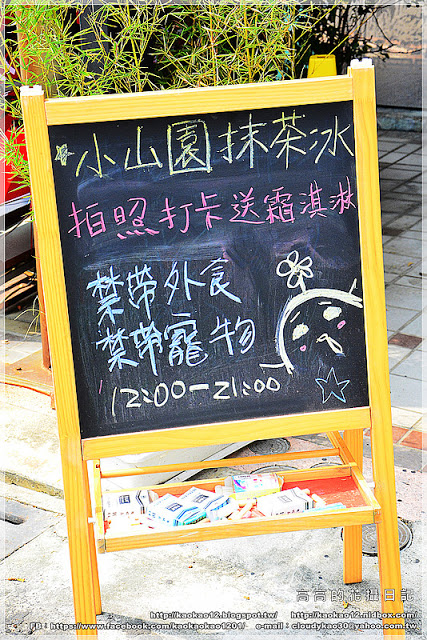 小山園抹茶冰
拍照打卡送霜淇淋
禁帶外食
禁帶寵物
12:00-21:00
高高的花妞日記
http://kaokao12.blogspot.tw/ http://kaokao12.nidbox.com/
FB：https://www.facebook.com/kaokaokao1201/ e-mail：cloudykao30@yahoo.com.tw